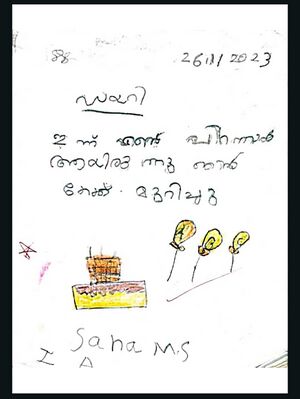 26/11/2023
ഡയറി
ഇന്ന് എന്റെ പിറന്നാൾ
ആയിരുന്നു ഞാൻ
കേക്ക് മുറിച്ചു
Sana M.S
I A